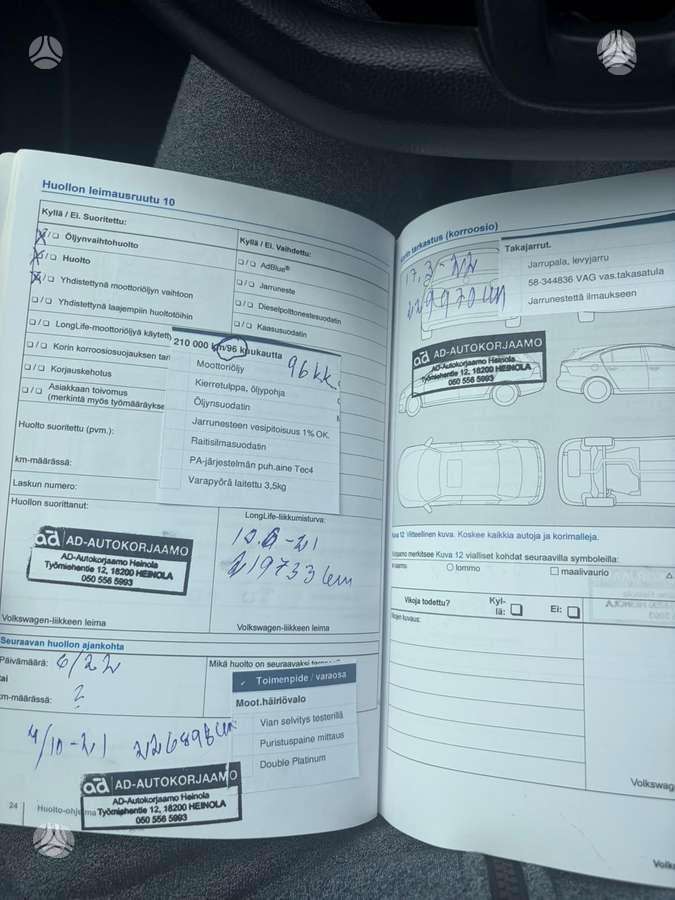 Huollon leimausruutu 10
Kyllä / Ei. Suoritettu:
Öljynvaihtohuolto
Huolto
Yhdistettynä moottoriöljyn vaihtoon
Yhdistettynä laajempiin huoltotöihin
LongLife-moottoriöljyä käytetty
Korin korroosiosuojauksen tar
Korjauskehotus
Asiakkaan toivomo
(merkintä myös työmääräykse
Huolto suoritettu (pvm.):
km-määrässä:
Laskun numero:
Huollon suorittanut:
Kyllä / Ei. Vaihdettu:
AdBlue®
Jarruneste
Dieselpolttonestesuodatin
Kaasusuodatin
210 000 km/96 kuukautta
96 kk
Moottoriöljy
Kierretulppa, öljypohja
Öljynsuodatin
Jarrunesteen vesipitoisuus 1% OK.
Raitisilmasuodatin
PA-järjestelmän puh.aine Tec4
Varapyörä laitettu 3,5kg
AD-AUTOKORJAAMO
AD-Autokorjaamo Heinola
Työmiehentie 12, 18200 HEINOLA
050 556 5993
LongLife-liikkumisturva:
219733 km
Volkswagen-liikkeen leima
Volkswagen-liikkeen leima
Seuraavan huollon ajankohta
Päivämäärä: 6/22
tai
km-määrässä: ?
Mikä huolto on seuraavaksi
✓ Toimenpide / varaosa
Moot.häiriövalo
Vian selvitys testerillä
Puristuspaine mittaus
Double Platinum
4/10-21
AD-AUTOKORJAAMO
AD-Autokorjaamo Heinola
Työmiehentie 12, 18200 HEINOLA
050 556 5993
24 Huolto-ohjelma
Korin tarkastus (korroosio)
17.3-22
229970 km
Takajarrut.
Jarrupala, levyjarru
58-344836 VAG vas.takasatula
Jarrunestettä ilmaukseen
AD-AUTOKORJAAMO
AD-Autokorjaamo Heinola
Työmiehentie 12, 18200 HEINOLA
050 556 5993
Kuva 12 Viitteellinen kuva. Koskee kaikkia autoja ja korimalleja.
merkitsee Kuva 12 vialliset kohdat seuraavilla symboleilla:
lommo
maalivaurio
Vikoja todettu?
Kyl-
lä:
Ei:
Volkswag
Volk